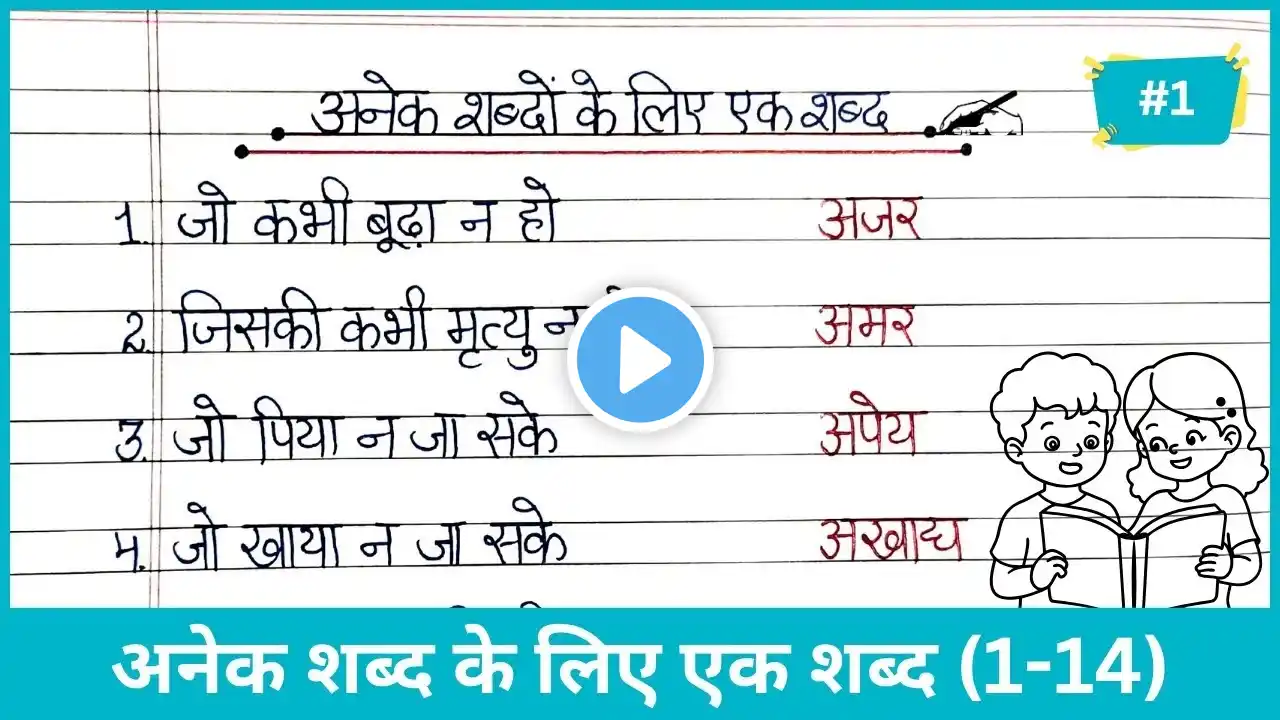 अनेक शब्दों के लिए एक शब्द
#1
1. जो कभी बूढ़ा न हो अजर
2. जिसकी कभी मृत्यु न अमर
3. जो पिया न जा सके अपेय
4. जो खाया न जा सके अखाद्य
अनेक शब्द के लिए एक शब्द (1-14)